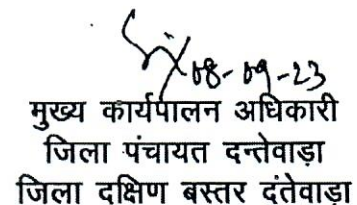 08-09-23
मुख्य कार्यपालन अधिकारी
जिला पंचायत दन्तेवाड़ा
जिला दक्षिण बस्तर दंतेवाड़ा